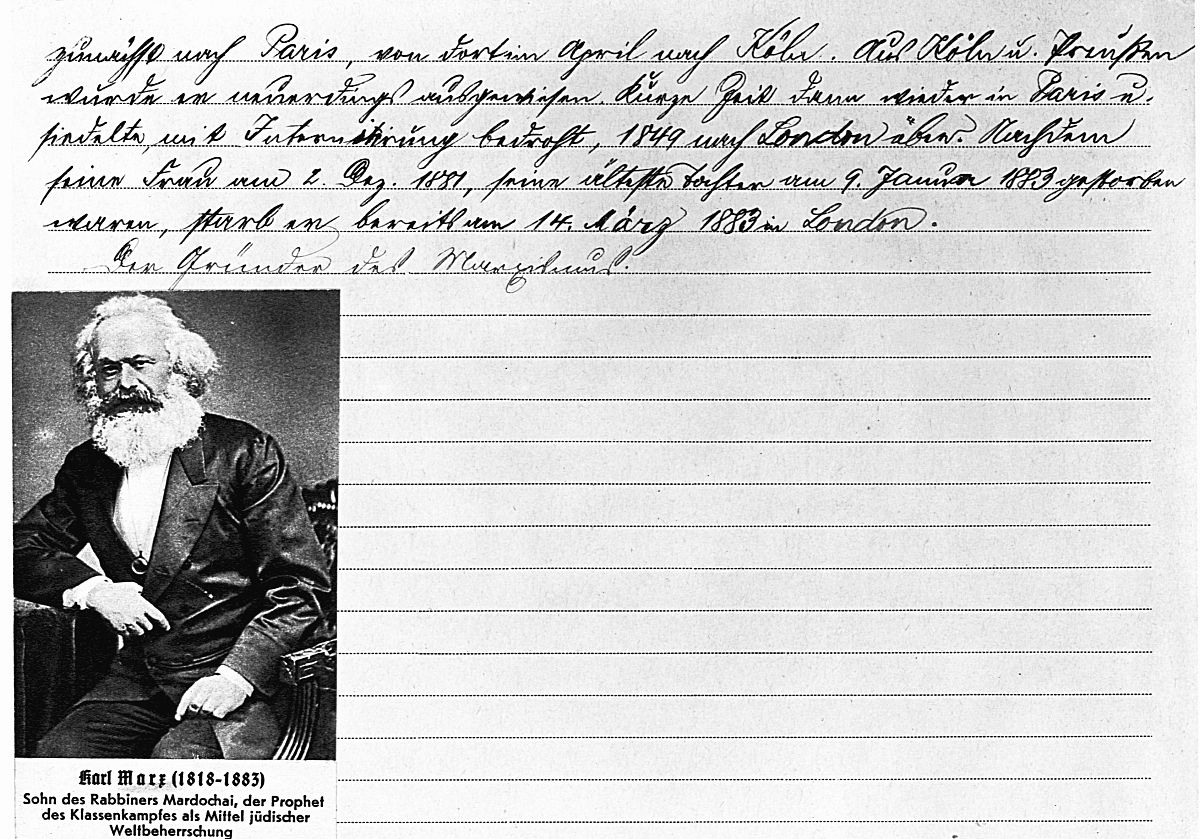 zunächst nach Paris, von dort im April nach Köln. Aus Köln u. Preußen
wurde er neuerdings ausgewiesen. Kurze Zeit dann wieder in Paris u.
siedelte, mit Internierung bedroht, 1849 nach London über. Nachdem
seine Frau am 2. Dez. 1881, seine älteste Tochter am 9. Januar 1883 gestorben
waren, starb er bereits am 14. März 1883 in London.
Der Gründer des Marxismus.
Karl Marx (1818-1883)
Sohn des Rabbiners Mardochai, der Prophet
des Klassenkampfes als Mittel jüdischer
Weltbeherrschung